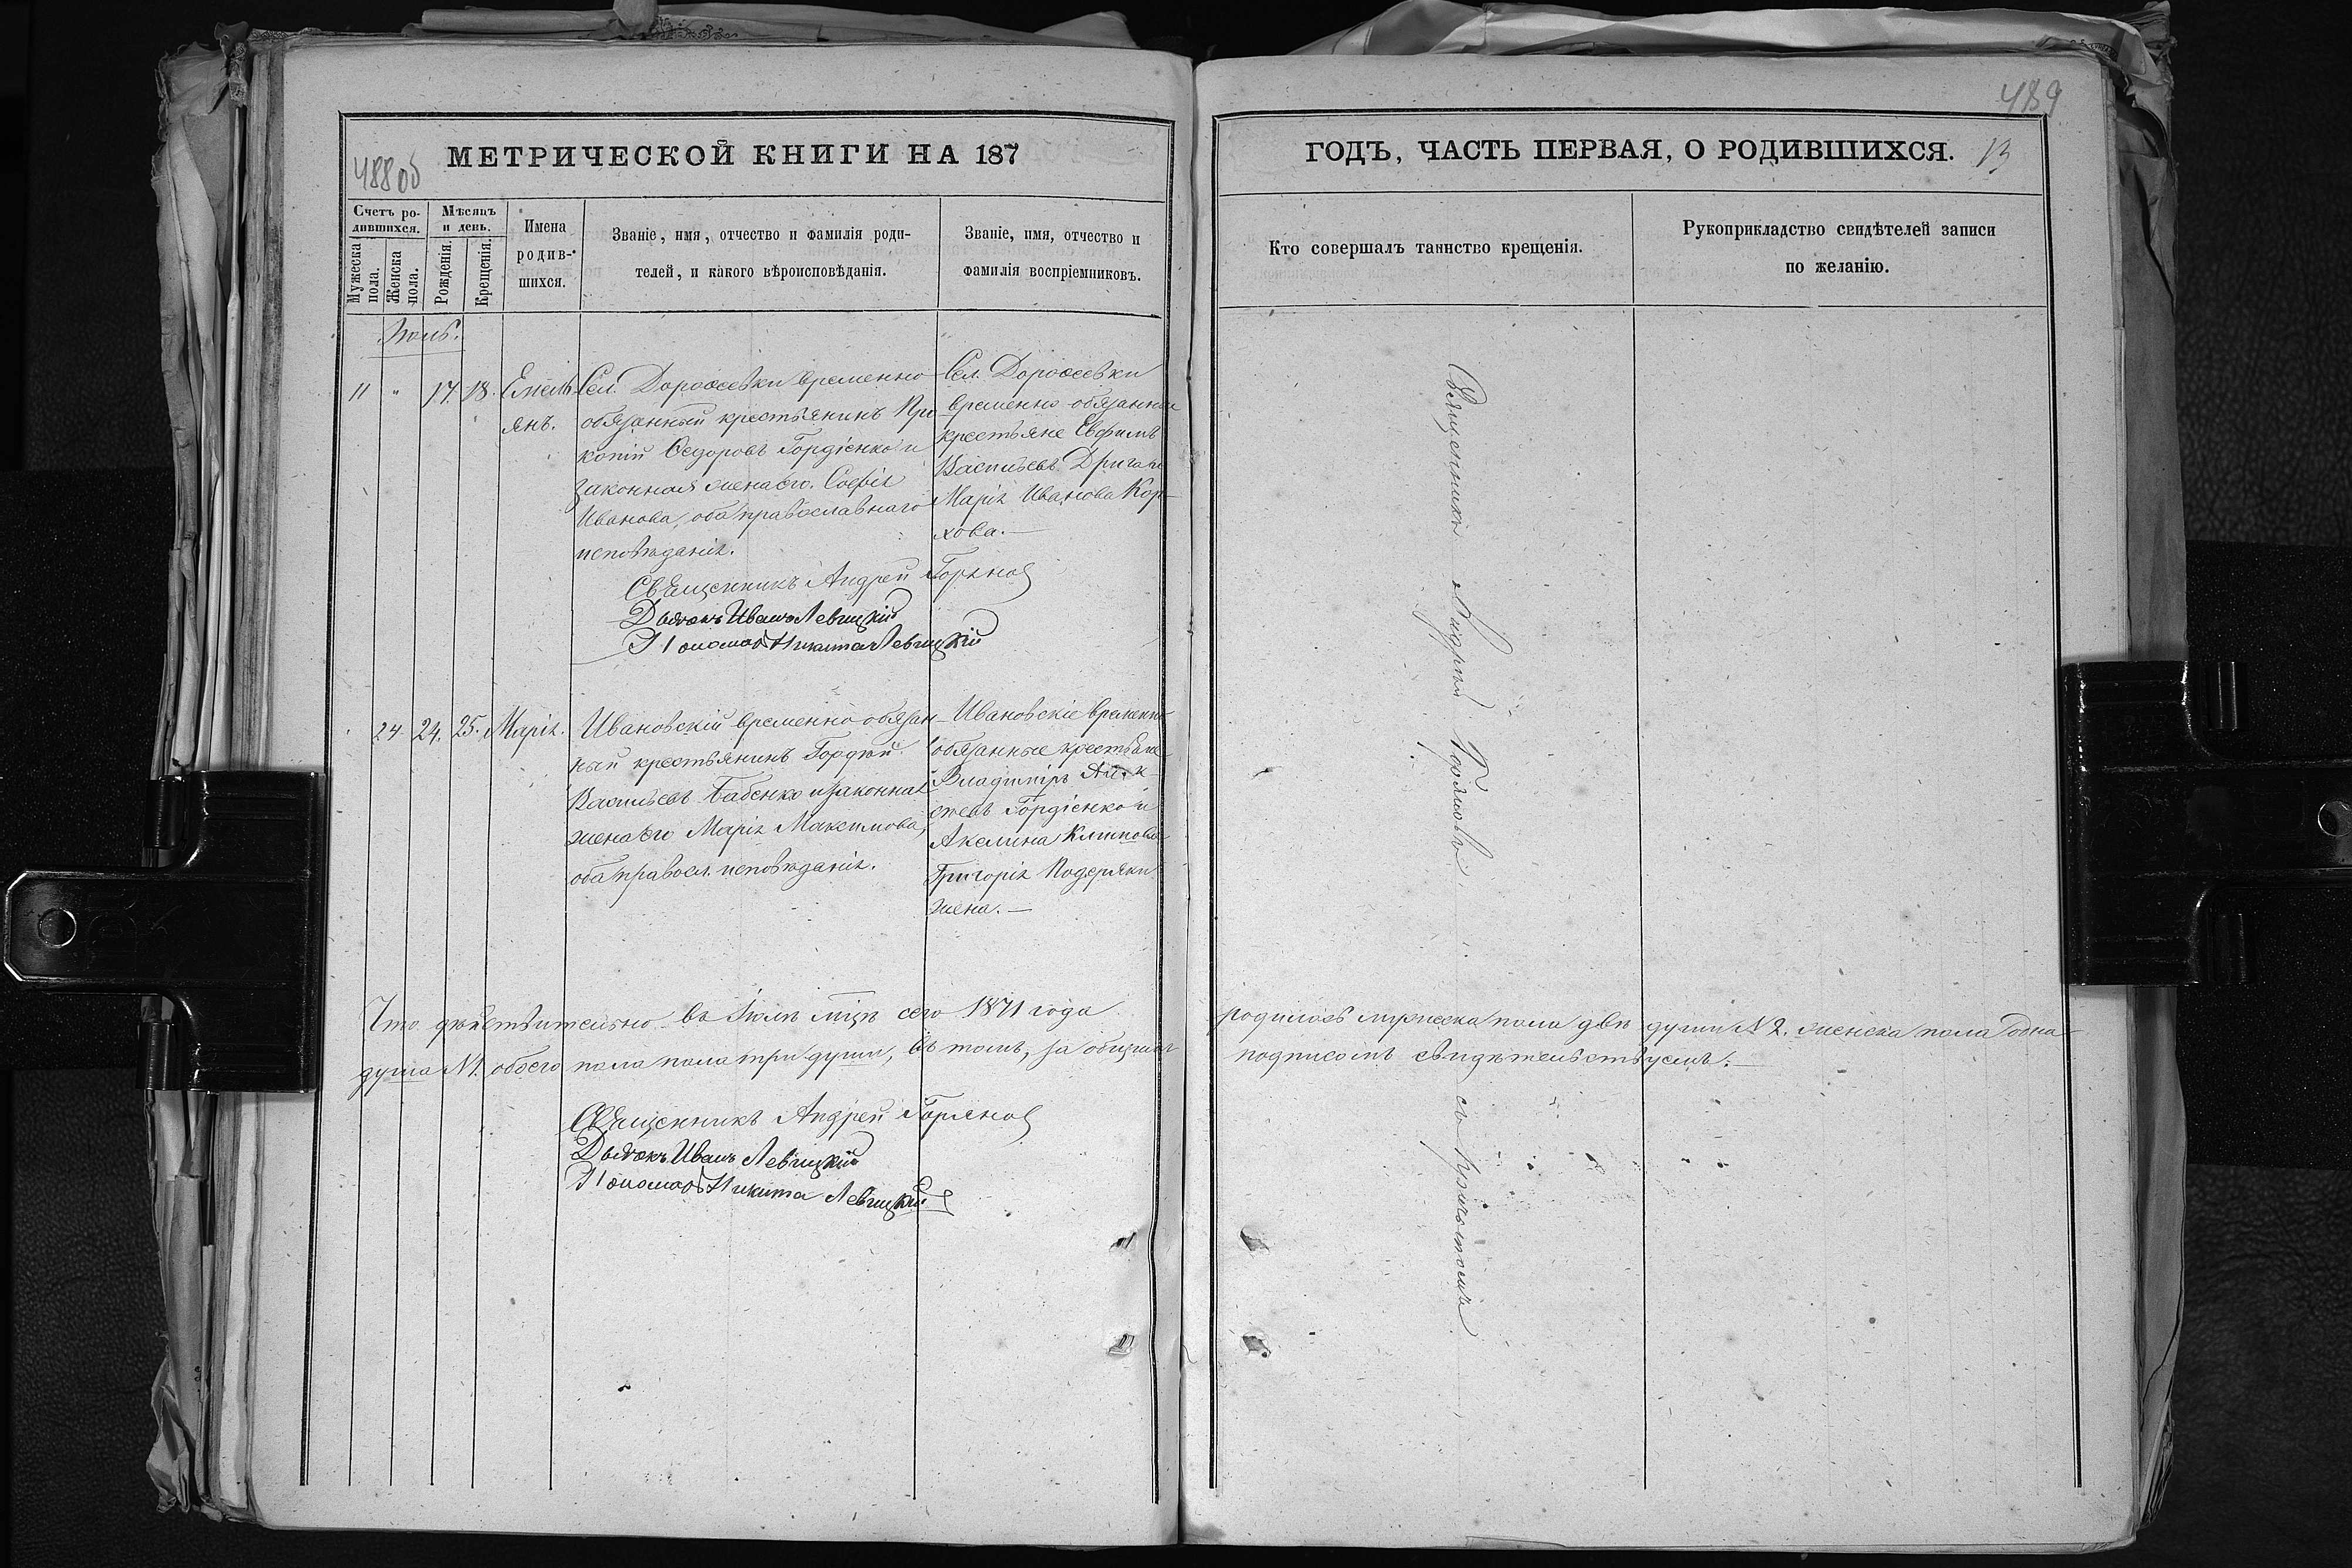 489
488 об
МЕТРИЧЕСКОЙ КНИГИ НА 187
ГОДЪ, ЧАСТЬ ПЕРВАЯ, О РОДИВШИХСЯ.
13
Счетъ ро-
дившихся.
Мужеска
пола.
Женска
пола.
Мѣсяцъ
и день.
Рожденія.
Крещенія.
Имена
родив-
шихся.
Званіе, имя, отчество и фамилія роди-
телей, и какого вѣроисповѣданія.
Званіе, имя, отчество и
фамилія воспріемниковъ.
Кто совершалъ таинство крещенія.
Рукоприкладство свидѣтелей записи
по желанію.
11 " 17. 18.
Емель-
янъ.
Сел. Дороѳеевки временно
обязанный крестьянинъ Про
копій Ѳедоровъ Гордіенко и
законная жена его Софія
Иванова, оба православнаго
исповѣданія.
Сел. Дороѳеевки
временно-обязанные
крестьяне Евфимъ
Васильевъ Дрига и
Марія Иванова Кор-
хова.
Священникъ Андрей Горяновъ
Дьячокъ Иванъ Левицкій
Пономарь Никита Левицкій
24. 24. 25. Марія.
Ивановскій временно обязан-
ный крестьянинъ Гордѣй
Васильевъ Бабенко и законная
жена его Марія Максимова,
оба правосл. исповѣданія.
Ивановскіе временно
обязанные крестьяне
Владиміръ Алек-
сѣевъ Гордіенко и
Акелина Климова
Григорія Подеряки
жена.
Священникъ Андрей Горяновъ
съ причтомъ
Что дѣйствительно въ Іюлѣ мцѣ сего 1871 года родилось мужеска пола двѣ души № 2. женска пола одна
душа № 1. обоего пола пола три души, въ томъ, за общимъ подписомъ свидѣтельствуемъ:
Священникъ Андрей Горяновъ
Дьячокъ Иванъ Левицкій
Пономарь Никита Левицкій